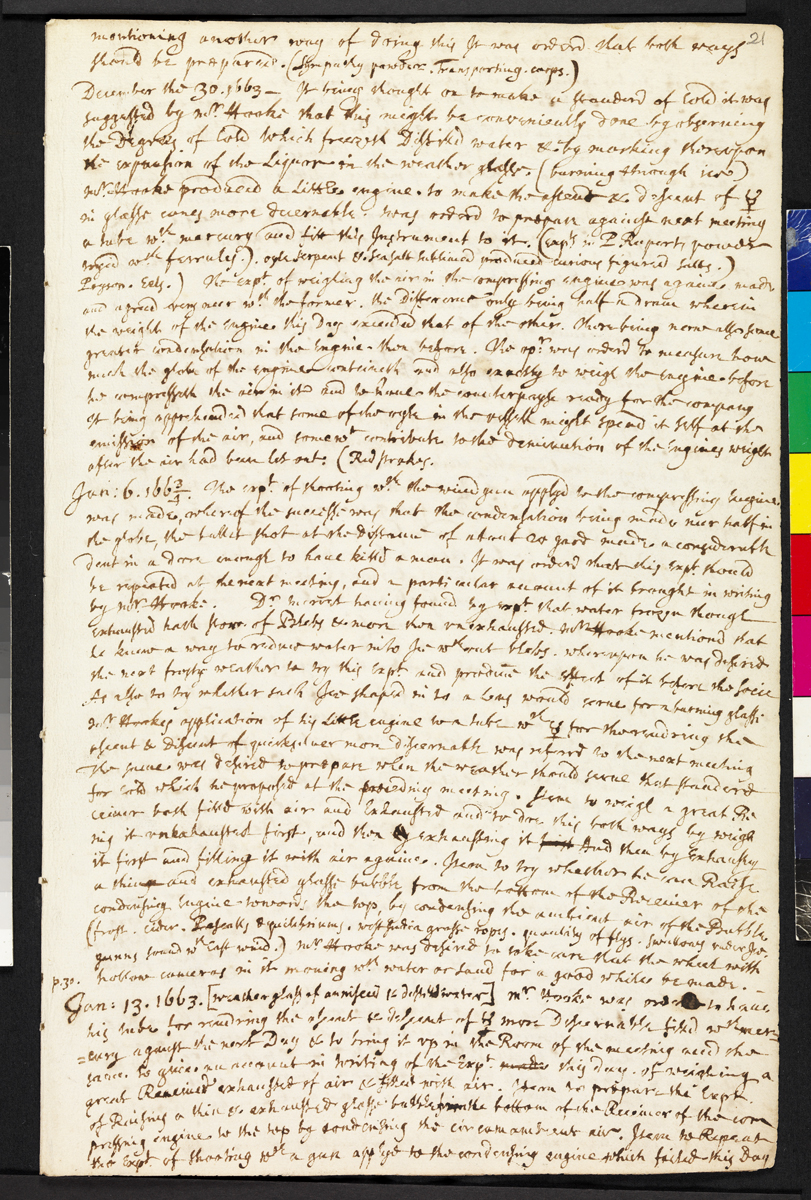 21
mentioning another way of doing this It was orderd that both ways
should be prepared. (Sympathy powder. Transporting corps.)
December the 30. 1663 - It being thought on to make a standerd of Cold it was
suggested by mr. Hooke that this might be conveniently done by obseruing
the Degrees of Cold which freezeth Distilld water & by marking therevpon
the expansion of the Liquor in the weather glasse. (burning through ice)
mr. Hooke produced a Little engine to make the ascent & descent of ☿
in glasse canes more decernable. was orderd to prepare against next meeting
a tube wth. mercury and fitt this Instrument to it. (expt. in P. Ruperts powder
tryed wth ferrules). oyle Serpent & Seasalt sublimed produced curious figured salts.)
Poyson. Eels.) The expt. of weighing the air in the compressing engine was againe made
and agreed very neer wth the former. the Difference only being half a dram wherein
the weight of the Engine this Day exceeded that of the other. There being now also some
greater condensation in the Engine then before. The opr. was orderd to measure how
much the globe of the engine containeth and also exactly to weigh the engine before
he compresseth the air in it and to haue the counterpoyse ready for the company
It being apprehended that some of the oyle in the vessell might spend it self at the
emission of the air, and somewt. contribute to the deminution of the Engines weight
after the air had been let out. (Rusbrokes.
Jan: 6. 1663/4. The expt. of shooting wth. the wind gun applyd to the compressing Engine
was made, wherof the successe was that the condensation being made neer half in
the globe, the bullet shot at the Distance of about 20 yards made a considerable
Dent in a dore enough to haue killd a man. It was orderd that this expt. should
be repeated at the next meeting, and a particular account of it brought in writing
by mr Hooke. Dr merret hauing found by expt. that water frozen though
Exhausted hath store of Blebs & more then vnexhausted. mr Hooke mentiond that
he knew a way to reduce water into Ice wthout blebs. wherevpon he was desired
the next frosty weather to try this expt. and produce the effect of it before the Socie
As also to try whether such Ice shaped in to a Lens would serue for a burning glasse
mr Hookes application of his Little engine to a tube wth ☿ for the rendring the
ascent & descent of quicksiluer more discernable was referrd to the next meeting
The same was desired to prepare when the weather should serue that standard
for cold which he proposed at the preceding meeting. Item to weigh a great Re
ceiuer both filld with air and Exhausted and to doe this both ways by weigh
ing it vnexhausted first, and then exhausting it And then by Exhausting
it first and filling it with air againe. Item to try whether he can Raise
a thin and exhausted glasse bubble from the bottom of the Receiuer of the
condensing Engine towards the top, by condensing the ambient air of the Bubble.
(frost. cider. Pascalls Equilibriums. west India grasse ropes. quantity of flys. Swallows vnder Ice.
gunns sound wth East wind.) mr Hooke was desired to take care that the wheel with
hollow cameras in it mouing wth water or sand for a good while be made.
p.30.
Jan: 13. 1663. [weather glass of anniseed & distilld water] mr. Hooke was orderd to haue
his tube for rendring the ascent & descent of ☿ more Discernable filld wth mer=
=cury against the next Day & to bring it vp in the Room of the meeting and the
same to giue an account in writing of the Expt. this day. of weighing a
great Receiuer exhausted of air & filled with air. Item to prepare the Expt.
of Raising a thin & exhausted glasse bubble from the bottom of the Receiuer of the com
pressing engine to the top by condensing the circumambient air. Item to Repeat
the Expt. of shooting wth a gun applyd to the condensing engine which failed this Day